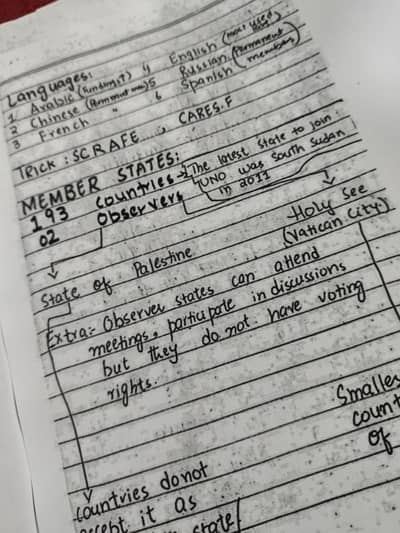 Languages:
1 Arabic (funding it) 4 English (most used
2 Chinese (Permanent mem) 5 Russian (Permanent
3 French " 6 Spanish members)
TRick : SCRAFE CARES.F
MEMBER STATES:
193 countries → The latest state to join
UNO was South Sudan
in 2011
02 Observers
State of Palestine
Holy See
(Vatican City)
Extra:- Observer states can attend
meetings, participate in discussions
but they do not have voting
rights.
Smalles
count
of
countries donot
accept it as
state/